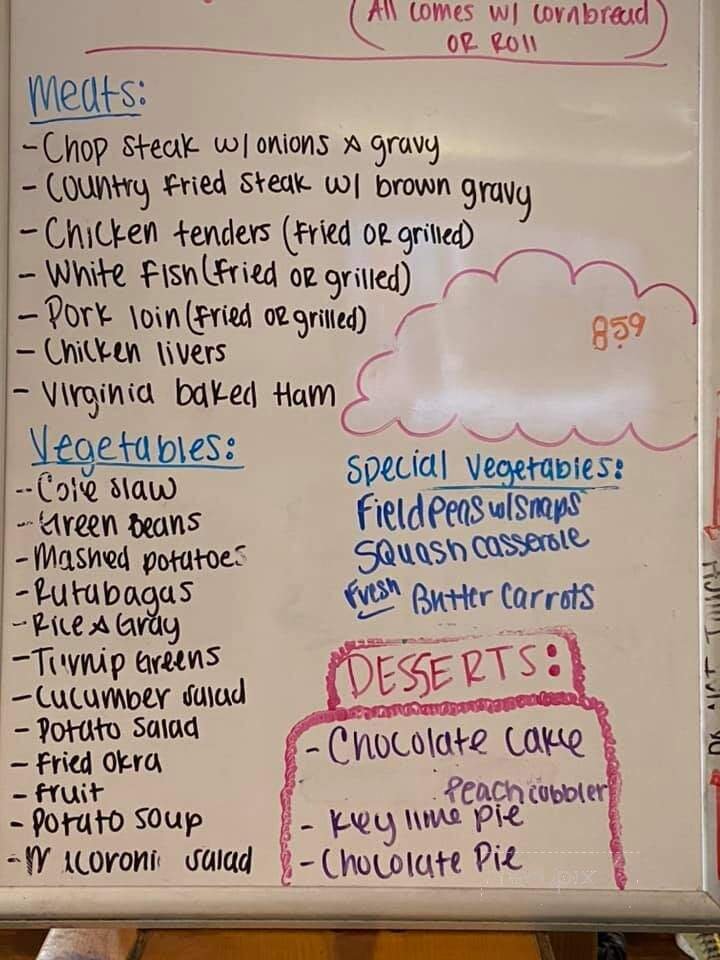 All comes w/ cornbread
OR Roll
Meats:
- Chop steak w/ onions & gravy
- Country fried steak w/ brown gravy
- Chicken tenders (fried OR grilled)
- White fish (fried OR grilled)
- Pork loin (fried OR grilled)
- Chicken livers
- Virginia baked Ham
859
Vegetables:
- Cole slaw
- Green Beans
- Mashed potatoes
- Rutabagas
- Rice & Gray
- Turnip Greens
- Cucumber salad
- Potato Salad
- fried okra
- fruit
- Potato soup
- Macoroni salad
Special Vegetables:
Field Peas w/ Snaps
Squash casserole
Fresh Butter Carrots
DESSERTS:
- Chocolate cake
Peach cobbler
- Key lime pie
- Chocolate Pie
DO NOT TOUCH